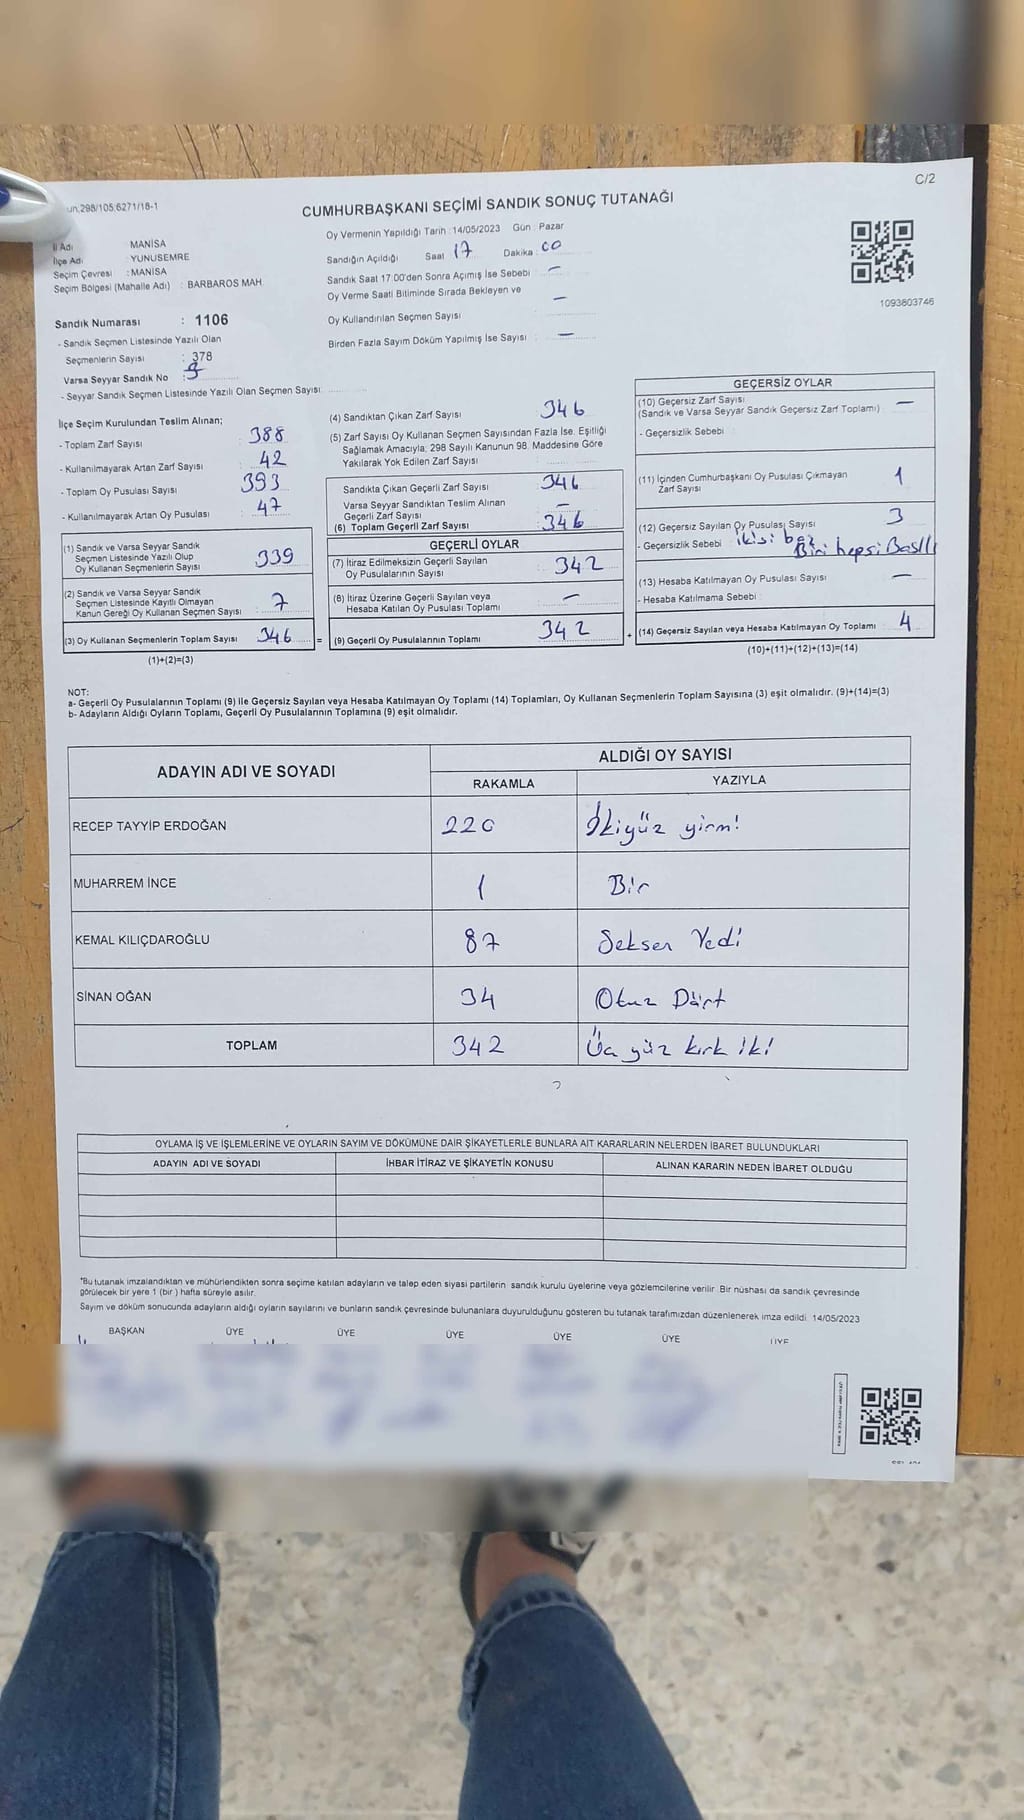 C/2
un.298/105.6271/18-1
CUMHURBAŞKANI SEÇİMİ SANDIK SONUÇ TUTANAĞI
İl Adı : MANİSA
İlçe Adı : YUNUSEMRE
Seçim Çevresi : MANİSA
Seçim Bölgesi (Mahalle Adı) : BARBAROS MAH.
Oy Vermenin Yapıldığı Tarih :14/05/2023 Gün : Pazar
Sandığın Açıldığı Saat 17 Dakika : 00
Sandık Saat 17:00'den Sonra Açımış İse Sebebi : —
Oy Verme Saati Bitiminde Sırada Bekleyen ve
Oy Kullandırılan Seçmen Sayısı : —
Birden Fazla Sayım Döküm Yapılmış İse Sayısı : —
1093803746
Sandık Numarası : 1106
- Sandık Seçmen Listesinde Yazılı Olan
Seçmenlerin Sayısı : 378
Varsa Seyyar Sandık No :
- Seyyar Sandık Seçmen Listesinde Yazılı Olan Seçmen Sayısı:
İlçe Seçim Kurulundan Teslim Alınan;
- Toplam Zarf Sayısı : 388
- Kullanılmayarak Artan Zarf Sayısı : 42
- Toplam Oy Pusulası Sayısı : 393
- Kullanılmayarak Artan Oy Pusulası : 47
(1) Sandık ve Varsa Seyyar Sandık
Seçmen Listesinde Yazılı Olup
Oy Kullanan Seçmenlerin Sayısı : 339
(2) Sandık ve Varsa Seyyar Sandık
Seçmen Listesinde Kayıtlı Olmayan
Kanun Gereği Oy Kullanan Seçmen Sayısı : 7
(3) Oy Kullanan Seçmenlerin Toplam Sayısı : 346 =
(1)+(2)=(3)
(4) Sandıktan Çıkan Zarf Sayısı : 346
(5) Zarf Sayısı Oy Kullanan Seçmen Sayısından Fazla İse, Eşitliği
Sağlamak Amacıyla; 298 Sayılı Kanunun 98. Maddesine Göre
Yakılarak Yok Edilen Zarf Sayısı :
Sandıkta Çıkan Geçerli Zarf Sayısı : 346
Varsa Seyyar Sandıktan Teslim Alınan
Geçerli Zarf Sayısı : —
(6) Toplam Geçerli Zarf Sayısı : 346
GEÇERLİ OYLAR
(7) İtiraz Edilmeksizin Geçerli Sayılan
Oy Pusulalarının Sayısı : 342
(8) İtiraz Üzerine Geçerli Sayılan veya
Hesaba Katılan Oy Pusulası Toplamı : —
(9) Geçerli Oy Pusulalarının Toplamı : 342 +
GEÇERSİZ OYLAR
(10) Geçersiz Zarf Sayısı
(Sandık ve Varsa Seyyar Sandık Geçersiz Zarf Toplamı) : —
- Geçersizlik Sebebi :
(11) İçinden Cumhurbaşkanı Oy Pusulası Çıkmayan
Zarf Sayısı : 1
(12) Geçersiz Sayılan Oy Pusulası Sayısı : 3
- Geçersizlik Sebebi : ikisi boş
Biri hepsi Basılı
(13) Hesaba Katılmayan Oy Pusulası Sayısı : —
- Hesaba Katılmama Sebebi :
(14) Geçersiz Sayılan veya Hesaba Katılmayan Oy Toplamı : 4
(10)+(11)+(12)+(13)=(14)
NOT:
a- Geçerli Oy Pusulalarının Toplamı (9) ile Geçersiz Sayılan veya Hesaba Katılmayan Oy Toplamı (14) Toplamları, Oy Kullanan Seçmenlerin Toplam Sayısına (3) eşit olmalıdır. (9)+(14)=(3)
b- Adayların Aldığı Oyların Toplamı, Geçerli Oy Pusulalarının Toplamına (9) eşit olmalıdır.
ADAYIN ADI VE SOYADI ALDIĞI OY SAYISI
RAKAMLA YAZIYLA
RECEP TAYYİP ERDOĞAN 220 İkiyüz yirmi
MUHARREM İNCE 1 Bir
KEMAL KILIÇDAROĞLU 87 Seksen Yedi
SİNAN OĞAN 34 Otuz Dört
TOPLAM 342 Üç yüz kırk iki
OYLAMA İŞ VE İŞLEMLERİNE VE OYLARIN SAYIM VE DÖKÜMÜNE DAİR ŞİKAYETLERLE BUNLARA AİT KARARLARIN NELERDEN İBARET BULUNDUKLARI
ADAYIN ADI VE SOYADI İHBAR İTİRAZ VE ŞİKAYETİN KONUSU ALINAN KARARIN NEDEN İBARET OLDUĞU
*Bu tutanak imzalandıktan ve mühürlendikten sonra seçime katılan adayların ve talep eden siyasi partilerin sandık kurulu üyelerine veya gözlemcilerine verilir. Bir nüshası da sandık çevresinde
görülecek bir yere 1 (bir ) hafta süreyle asılır.
Sayım ve döküm sonucunda adayların aldığı oyların sayılarını ve bunların sandık çevresinde bulunanlara duyurulduğunu gösteren bu tutanak tarafımızdan düzenlenerek imza edildi. 14/05/2023
BAŞKAN ÜYE ÜYE ÜYE ÜYE ÜYE ÜYE